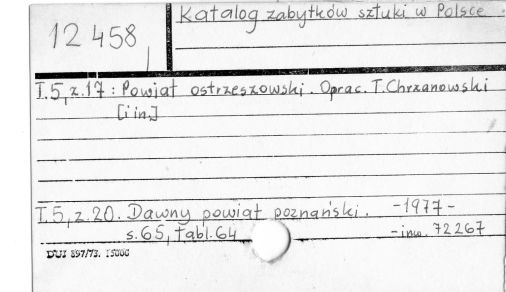 12 458
Katalog zabytków sztuki w Polsce.
T.5, z.17: Powiat ostrzeszowski. Oprac. T. Chrzanowski
[i in.]
T.5, z.20. Dawny powiat poznański. -1977-
s.65, tabl.64 -inw. 72267
DUJ 897/73. 15000